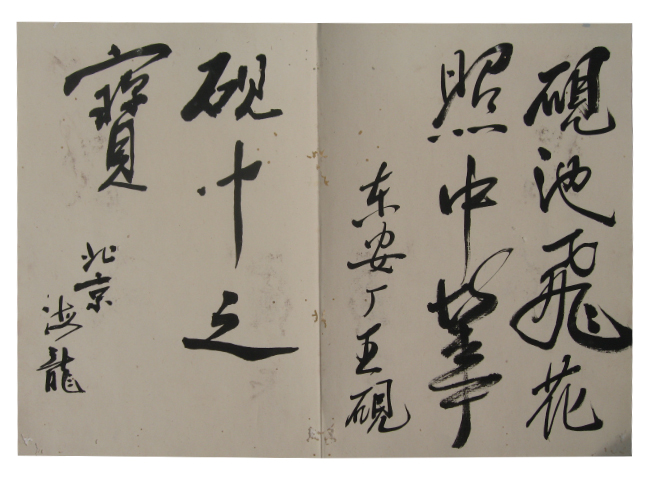 砚池飞花
照中華
东安丁王砚
砚中之
寶
北京
海龍